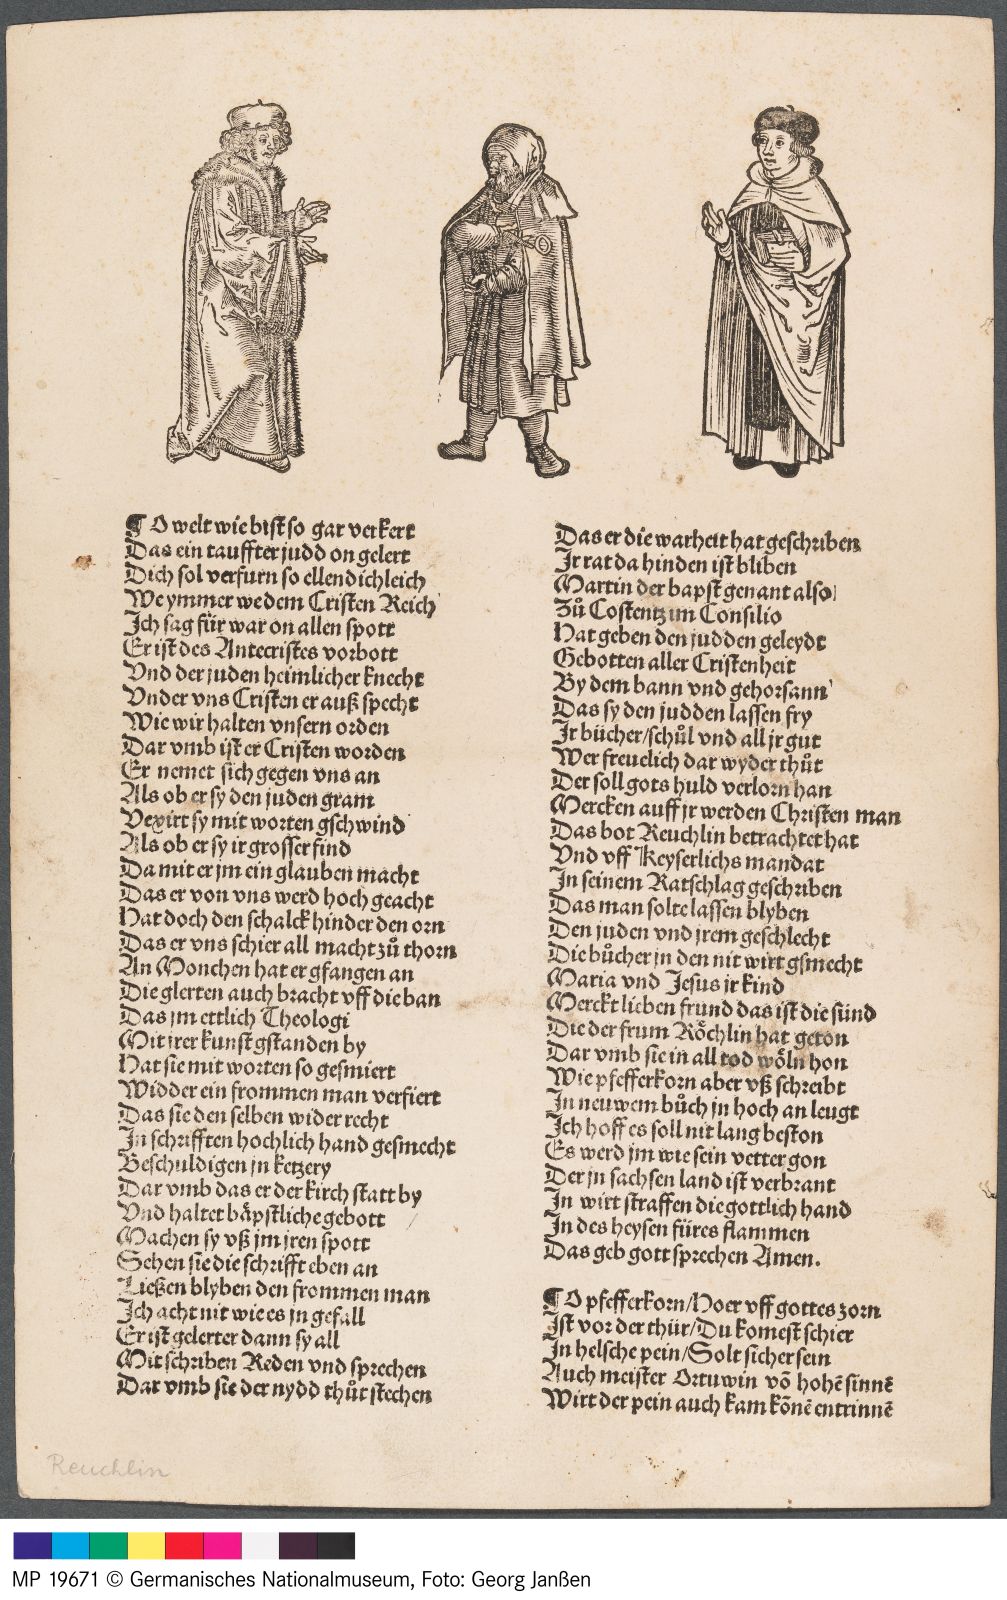 ¶ O welt wie bist so gar verkert
Das ein tauffter judd on gelert
Dich sol verfurn so ellendichleich
We ymmer we dem Cristen Reich
Ich sag für war on allen spott
Er ist des Antecristes vorbott
Vnd der juden heimlicher knecht
Vnder vns Cristen er auß specht
Wie wir halten vnsern orden
Dar vmb ist er Cristen worden
Er nemet sich gegen vns an
Als ob er sy den juden gram
Vexirt sy mit worten gschwind
Als ob er sy ir grosser find
Da mit er jm ein glauben macht
Das er von vns werd hoch geacht
Hat doch den schalck hinder den orn
Das er vns schier all macht zů thorn
An Monchen hat er gfangen an
Die glerten auch bracht vff die ban
Das jm ettlich Theologi
Mit irer kunst gstanden by
Hat sie mit worten so gesmiert
Widder ein frommen man verfiert
Das sie den selben wider recht
In schrifften hochlich hand gesmecht
Beschuldigen jn ketzery
Dar vmb das er der kirch statt by
Vnd haltet bäpstliche gebott
Machen sy vß jm jren spott
Sehen sie die schrifft eben an
Ließen blyben den frommen man
Ich acht nit wie es jn gefall
Er ist gelerter dann sy all
Mit schriben Reden vnd sprechen
Dar vmb sie der nydd thůt stechen
Das er die warheit hat geschriben
Ir rat da hinden ist bliben
Martin der bapst genant also
Zů Costentz im Consilio
Hat geben den judden geleydt
Gebotten aller Cristenheit
By dem bann vnd gehorsann
Das sy den judden lassen fry
Ir bücher/schůl vnd all jr gut
Wer freuelich dar wyder thůt
Der soll gots huld verlorn han
Mercken auff jr werden Christen man
Das bot Reuchlin betrachtet hat
Vnd vff Keyserlichs mandat
In seinem Ratschlag geschriben
Das man solte lassen blyben
Den juden vnd jrem geschlecht
Die bůcher jn den nit wirt gsmecht
Maria vnd Jesus jr kind
Merckt lieben frund das ist die sünd
Die der frum Röchlin hat geton
Dar vmb sie in all tod wöln hon
Wie pfefferkorn aber vß schreibt
In neuwem bůch jn hoch an leugt
Ich hoff es soll nit lang beston
Es werd jm wie sein vetter gon
Der jn sachsen land ist verbrant
In wirt straffen die gottlich hand
In des heysen füres flammen
Das geb gott sprechen Amen.
¶ O pfefferkorn/Hoer vff gottes zorn
Ist vor der thür/Du komest schier
In helsche pein/Solt sicher sein
Auch meister Ortuwin võ hohẽ sinnẽ
Wirt der pein auch kam kõnẽ entrinnẽ
Reuchlin
MP 19671 © Germanisches Nationalmuseum, Foto: Georg Janßen